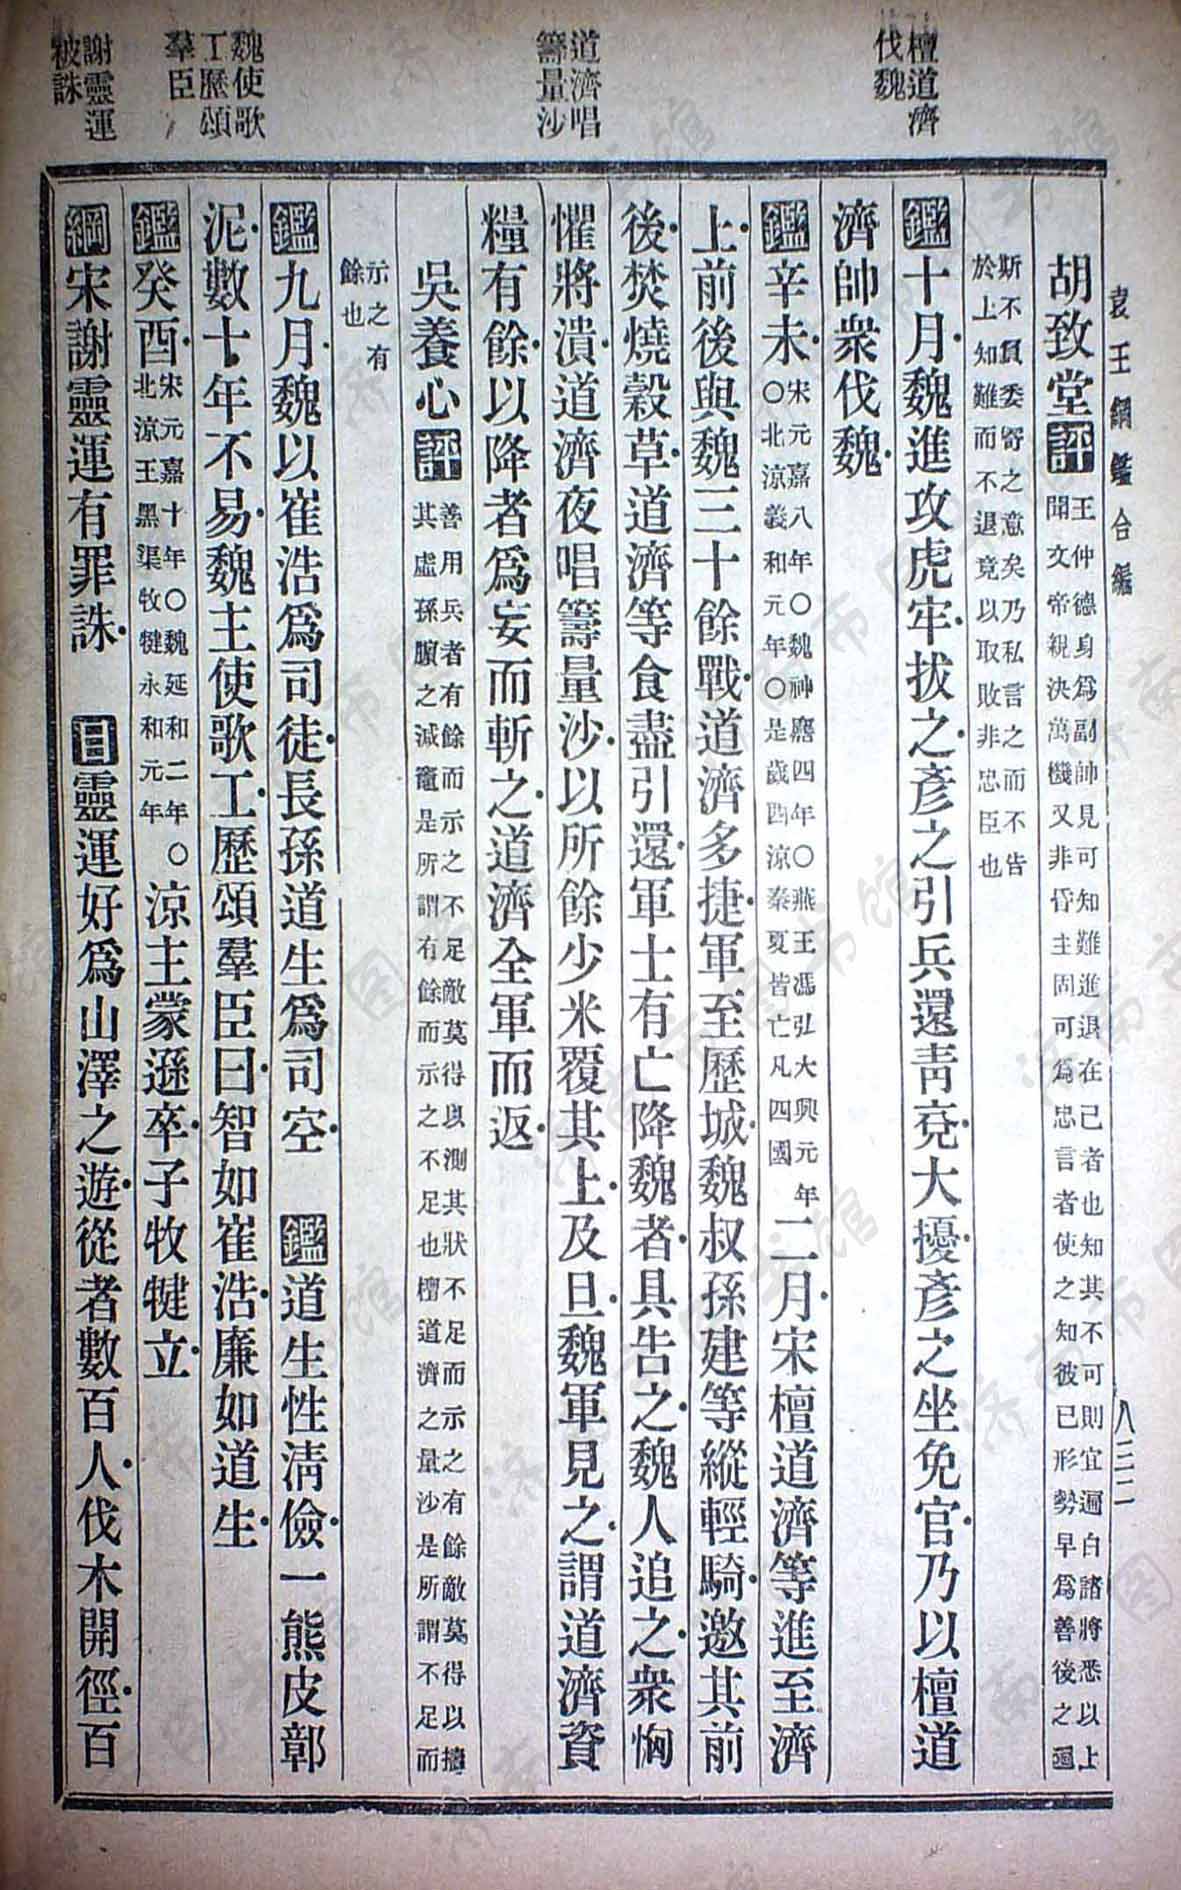 袁王綱鑑合編
八三二
檀道濟
伐魏
道濟唱
籌量沙
魏使歌
工歷頌
羣臣
謝靈運
被誅
胡致堂評
王仲德身爲副帥見可知難進退在己者也知其不可則宜遍白諸將悉以上
聞文帝親決萬機又非昏主固可爲忠言者使之知彼已形勢早爲善後之圖
斯不負委寄之意矣乃私言之而不告
於上知難而不退竟以取敗非忠臣也
鑑十月魏進攻虎牢拔之彥之引兵還靑兗大擾彥之坐免官乃以檀道
濟帥衆伐魏
鑑辛未
宋元嘉八年〇魏神䴥四年〇燕王馮弘大興元年
〇北涼義和元年〇是歲四涼秦夏皆亡凡四國
二月宋檀道濟等進至濟
上前後與魏三十餘戰道濟多捷軍至歷城魏叔孫建等縱輕騎邀其前
後焚燒穀草道濟等食盡引還軍士有亡降魏者具告之魏人追之衆恟
懼將潰道濟夜唱籌量沙以所餘少米覆其上及旦魏軍見之謂道濟資
糧有餘以降者爲妄而斬之道濟全軍而返
吳養心評
善用兵者有餘而示之不足敵莫得以測其狀不足而示之有餘敵莫得以擣
其虛孫臏之減竈是所謂有餘而示之不足也檀道濟之量沙是所謂不足而
示之有
餘也
鑑九月魏以崔浩爲司徒長孫道生爲司空 鑑道生性淸儉一熊皮鄣
泥數十年不易魏主使歌工歷頌羣臣曰智如崔浩廉如道生
鑑癸酉
宋元嘉十年〇魏延和二年〇
北涼王黑渠牧犍永和元年
涼主蒙遜卒子牧犍立
綱宋謝靈運有罪誅 目靈運好爲山澤之遊從者數百人伐木開徑百